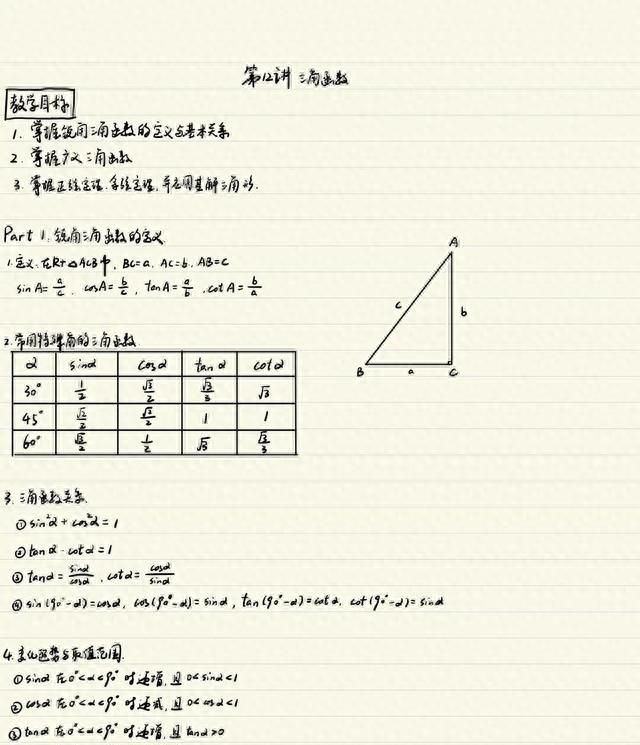 第12讲 三角函数
教学目标
1. 掌握锐角三角函数的定义与基本关系
2. 掌握广义三角函数
3. 掌握正弦定理、余弦定理,并应用其解三角形.
Part 1. 锐角三角函数的定义
1. 定义:在Rt△ACB中, BC=a, AC=b, AB=c
sin A=a/c, cosA=b/c, tanA=a/b, cotA=b/a
A
c
b
B
a
C
2. 常用特殊角的三角函数
α sinα cosα tanα cotα
30° 1/2 √3/2 √3/3 √3
45° √2/2 √2/2 1 1
60° √3/2 1/2 √3 √3/3
3. 三角函数关系.
① sin²α + cos²α = 1
② tanα · cotα = 1
③ tanα = sinα/cosα, cotα = cosα/sinα
④ sin(90°-α)=cosα, cos(90°-α)=sinα, tan(90°-α)=cotα, cot(90°-α)=sinα
4. 变化趋势与取值范围.
① sinα 在0°<α<90° 时递增, 且 0<sinα<1
② cosα 在0°<α<90° 时递减, 且 0<cosα<1
③ tanα 在0°<α<90° 时递增, 且 tanα>0